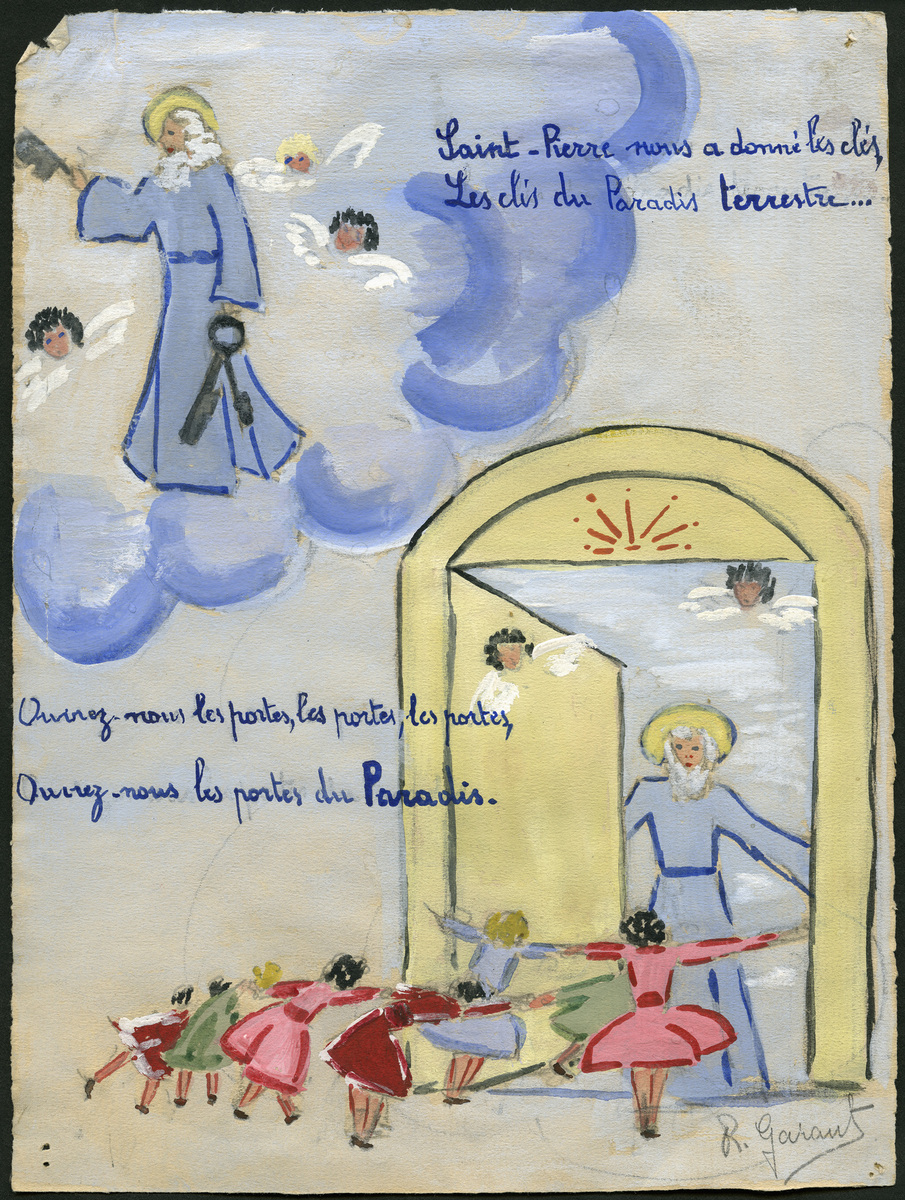 Saint-Pierre nous a donné les clés,
Les clés du Paradis terrestre...
Ouvrez-nous les portes, les portes, les portes,
Ouvrez-nous les portes du Paradis.
R. Garant